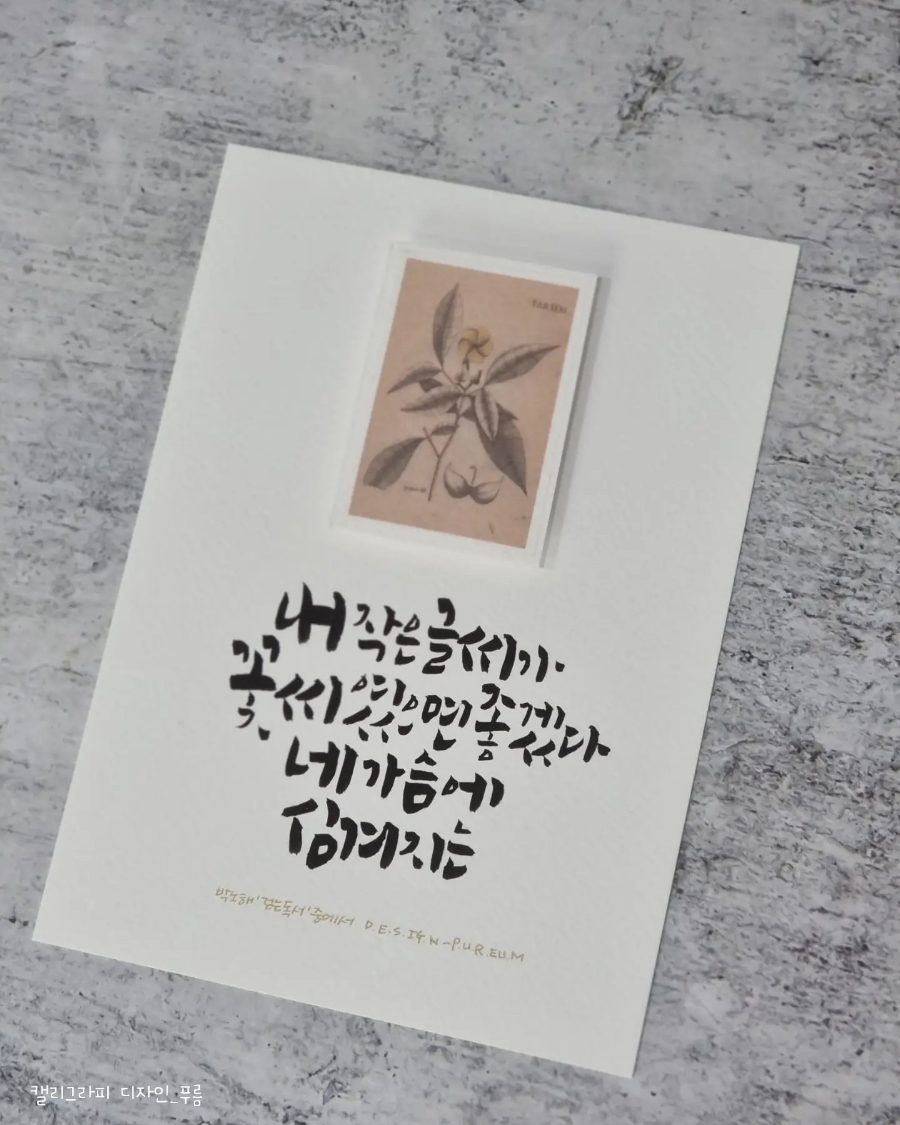 내 작은 글씨가
꽃씨였으면 좋겠다
네 가슴에
심겨지는
박노해 '걷는독서' 중에서 D.E.S.I.G.N-P.U.R.EU.M
캘리그라피 디자인_푸름